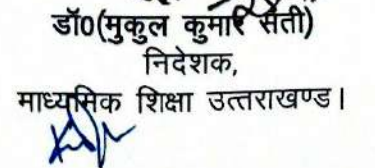 डॉ0(मुकुल कुमार सती)
निदेशक,
माध्यमिक शिक्षा उत्तराखण्ड।